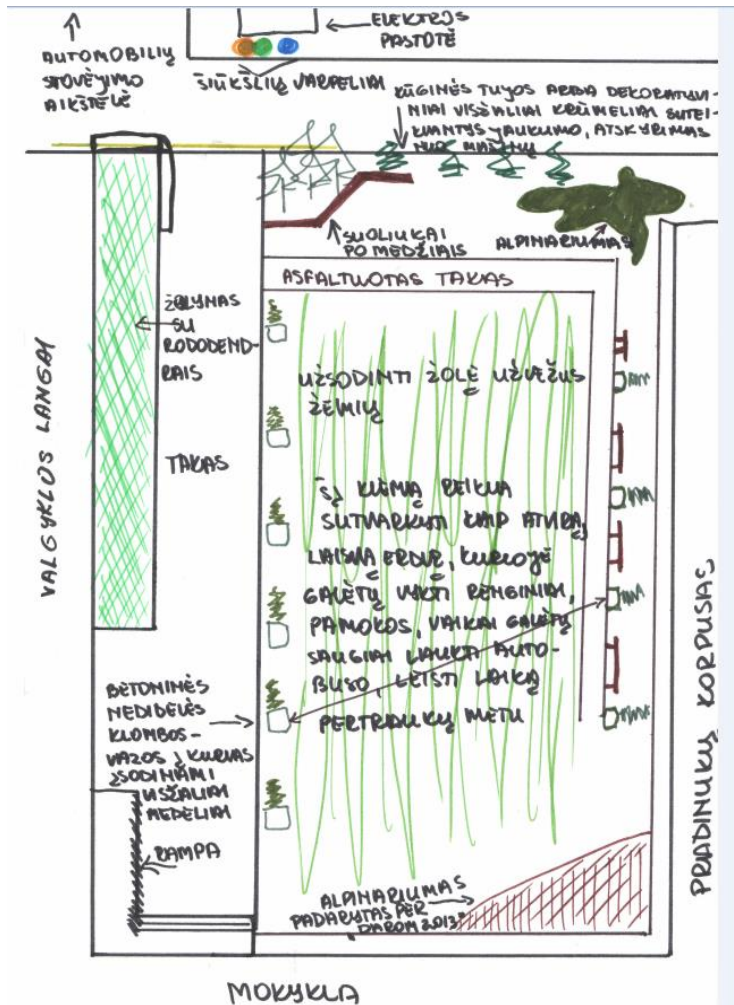 ELEKTROS
PASTOTĖ
AUTOMOBILIŲ
STOVĖJIMO
AIKŠTELĖ
ŠIUKŠLIŲ VARPELIAI
KŪGINĖS TUJOS ARBA DEKORATYVI-
NIAI VISŽALIAI KRŪMELIAI SUTEI-
KIANTYS JAUKUMO, ATSKYRIMAS
NUO MAŠINŲ
SUOLIUKAI
PO MEDŽIAIS
ALPINARIUMAS
ASFALTUOTAS TAKAS
ŽOLYNAS
SU
RODODEND-
RAIS
VALGYKLOS LANGAI
TAKAS
UŽSODINTI ŽOLĘ UŽVEŽUS
ŽEMIŲ
ŠĮ KIEMĄ REIKIA
SUTVARKYTI KAIP ATVIRĄ,
LAISVĄ ERDVĘ, KURIOJE
GALĖTŲ VYKTI RENGINIAI,
PAMOKOS, VAIKAI GALĖTŲ
SAUGIAI LAUKTI AUTO-
BUSO, LEISTI LAIKĄ
PERTRAUKŲ METU
BETONINĖS
NEDIDELĖS
KLOMBOS-
VAZOS Į KURIAS
ĮSODINAMI
VISŽALIAI
MEDELIAI
RAMPA
PRADINUKŲ KORPUSAS
ALPINARIUMAS
PADARYTAS PER
"DAROM 2013"
MOKYKLA